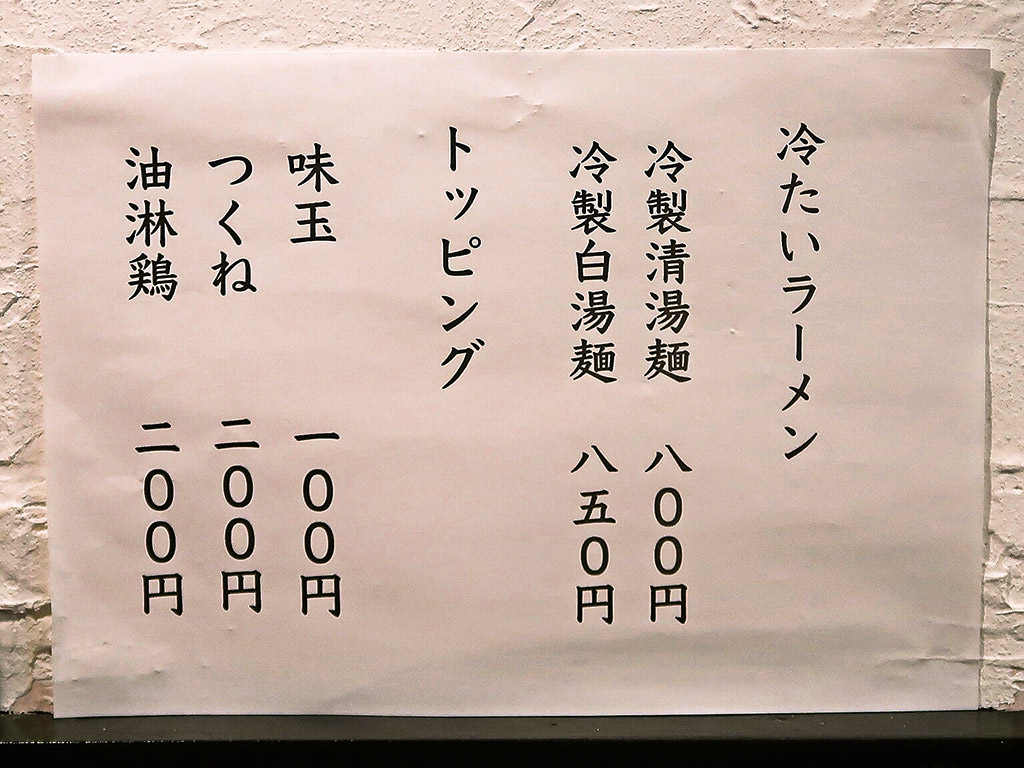 冷たいラーメン
冷製清湯麺 八〇〇円
冷製白湯麺 八五〇円
トッピング
味玉 一〇〇円
つくね 二〇〇円
油淋鶏 二〇〇円